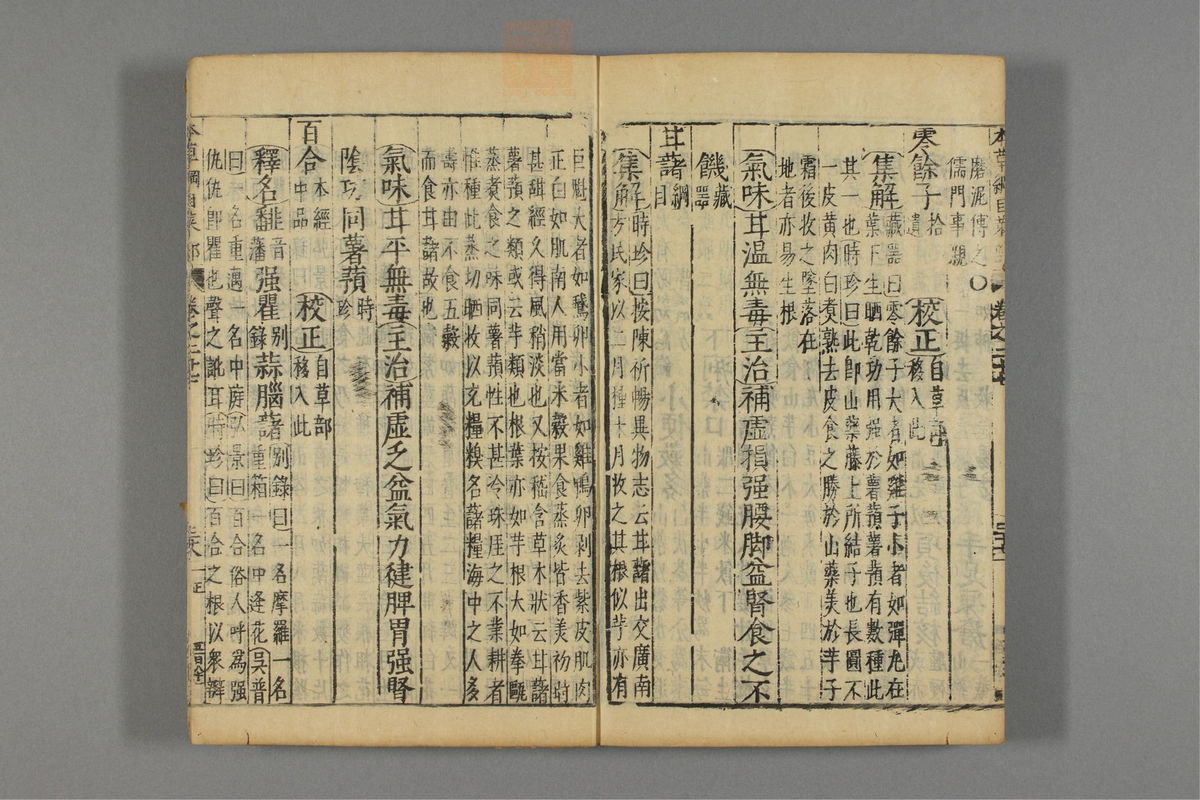 磨泥傅之○
儒門事親
零餘子拾遺 校正自草部移入此
集解藏器曰零餘子大者如雞子小者如彈丸在
葉下生晒乾功用强於薯蕷薯蕷有數種此
其一也時珍曰此即山藥藤上所結子也長圓不
一皮黄肉白煮熟去皮食之勝於山藥美於芋子
霜後收之墜落在
地者亦易生根
氣味甘溫無毒主治補虛損强腰脚益腎食之不
饑藏器
甘藷綱目
集解時珍曰按陳祈暢異物志云甘藷出交廣南
方民家以二月種十月收之其根似芋亦有
巨魁大者如鵝卵小者如雞鴨卵剥去紫皮肌肉
正白如肌南人用當米穀果食蒸炙皆香美初時
甚甜經久得風稍淡也又按嵇含草木狀云甘藷
薯蕷之類或云芋類也根葉亦如芋根大如拳甌
蒸煮食之味同薯蕷性不甚冷珠厓之不業耕者
惟種此蒸切晒收以充糧糗名藷糧海中之人多
壽亦由不食五穀
而食甘藷故也
氣味甘平無毒主治補虛乏益氣力健脾胃强腎
陰功同薯蕷時珍
百合本經中品 校正自草部移入此
釋名䪤音藩强瞿别錄蒜腦藷别錄曰一名摩羅一名
曰一名重邁一名中庭弘景曰百合俗人呼爲强
仇仇即瞿也聲之訛耳時珍曰百合之根以衆瓣